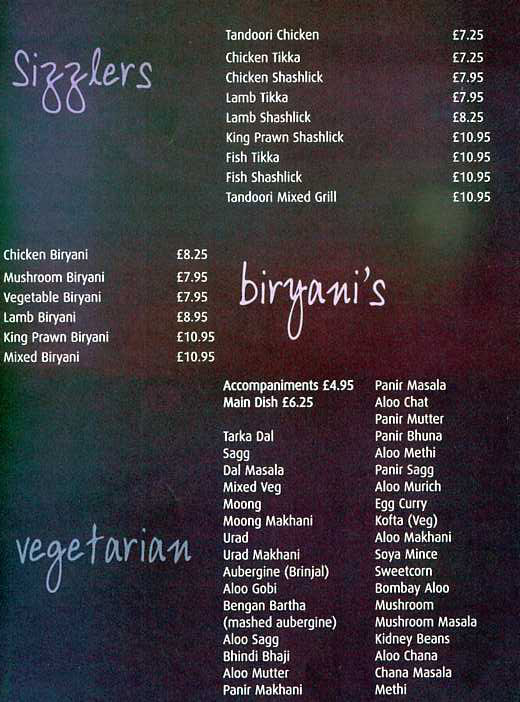 Sizzlers
Tandoori Chicken £7.25
Chicken Tikka £7.25
Chicken Shashlick £7.95
Lamb Tikka £7.95
Lamb Shashlick £8.25
King Prawn Shashlick £10.95
Fish Tikka £10.95
Fish Shashlick £10.95
Tandoori Mixed Grill £10.95
biryani's
Chicken Biryani £8.25
Mushroom Biryani £7.95
Vegetable Biryani £7.95
Lamb Biryani £8.95
King Prawn Biryani £10.95
Mixed Biryani £10.95
vegetarian
Accompaniments £4.95
Main Dish £6.25
Tarka Dal
Sagg
Dal Masala
Mixed Veg
Moong
Moong Makhani
Urad
Urad Makhani
Aubergine (Brinjal)
Aloo Gobi
Bengan Bartha
(mashed aubergine)
Aloo Sagg
Bhindi Bhaji
Aloo Mutter
Panir Makhani
Panir Masala
Aloo Chat
Panir Mutter
Panir Bhuna
Aloo Methi
Panir Sagg
Aloo Murich
Egg Curry
Kofta (Veg)
Aloo Makhani
Soya Mince
Sweetcorn
Bombay Aloo
Mushroom
Mushroom Masala
Kidney Beans
Aloo Chana
Chana Masala
Methi